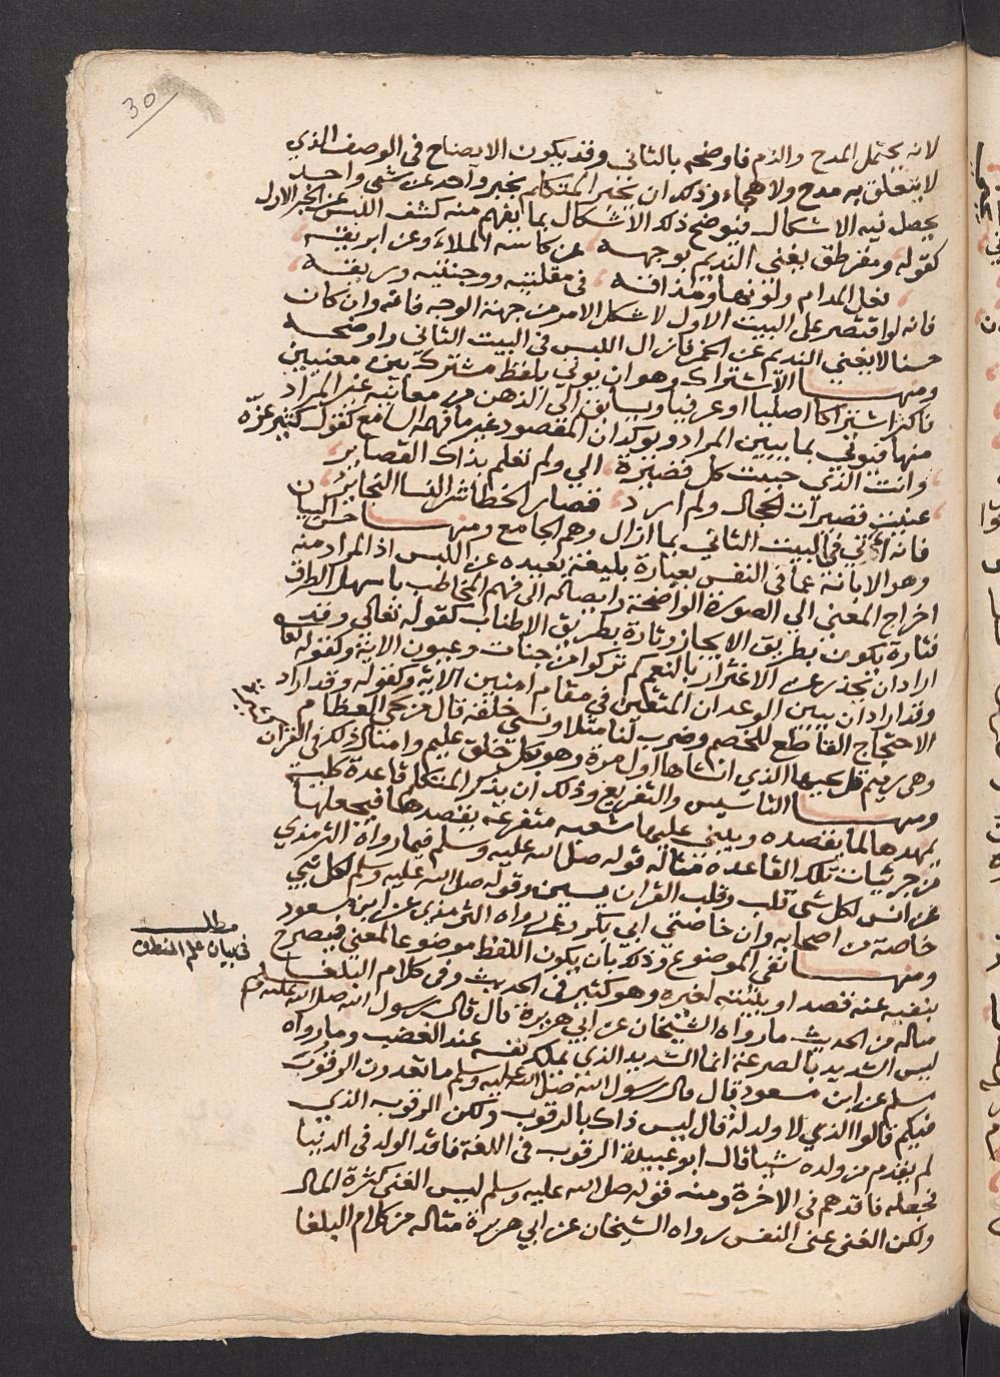 30
لانه يحتمل المدح والذم فاوضحه بالثاني وقد يكون الايضاح في الوصف الذي
لا يتعلق به مدح ولا هجاء وذلك ان يخبر المتكلم بخبر واحد عن شي واحد
يحصل فيه الاشكال فيوضح ذلك الاشكال بما يفهم منه كشف اللبس عن الخبر الاول
كقوله ومقرطق يغني النديم بوجهه عن كاسه الملاء وعن ابريقه
فعل المدام ولونها ومذاقه في مقلتيه ووجنتيه وريقه
فانه لو اقتصر على البيت الاول لاشكل الامر من جهة الوجه فانه وان كان
حسنا لا يغني النديم عن الخمر فازال اللبس في البيت الثاني واوضحه
ومنها الاشتراك وهو ان يوتي بلفظ مشترك بين معنيين
فاكثر اشتراكا اصليا او عرفيا ويسابق الى الذهن من معانيه غير المراد
منها فيوتي بما يبين المراد ويوكد ان المقصود غير ما فهمه السامع كقول كثير عزه
وانت الذي حببت كل قصيرة الي ولم تعلم بذاك القصاير
عنيت قصيرات الحجال ولم ارد قصار الخطا شر النسا البحاتر
فانه اتي في البيت الثاني بما ازال وهم الجامع ومنها حسن البيان
وهو الابانة عما في النفس بعبارة بليغة بعيده عن اللبس اذ المراد منه
اخراج المعني الي الصورة الواضحة وايصاله الى فهم المخاطب باسهل الطرق
فتارة يكون بطريق الايجاز وتارة بطريق الاطناب كقوله تعالي وقد
اراد ان يحذر عن الاغترار بالنعم كم تركوا من جنات وعيون الاية وكقوله تعا
وقد اراد ان يبين الوعد ان المتقين في مقام امنين الاية وكقوله وقد اراد
الاحتجاج القاطع للخصم وضرب لنا مثلا ونسي خلقه قال من يحي العظام
وهي رميم قل يحييها الذي انشاها اول مرة وهو بكل خلق عليم وامثال ذلك في القران
ومنها التاسيس والتفريع وذلك ان يذكر المتكلم قاعدة كلية
يمهدها لما يقصده ويبني عليها شعبه متفرعه يقصدها فيجعلها
من جزئيات تلك القاعده مثاله قوله صلى الله عليه وسلم فيما رواه الترمذي
عن انس لكل شي قلب وقلب القران يسين وقوله صلى الله عليه وسلم لكل نبي
خاصة من اصحابه وان خاصتي ابي بكر وعمر رواه الترمذي عن ابن مسعود
ومنها نفي الموضوع وذلك بان يكون اللفظ موضوعا لمعني فيصرح
بنفيه عنه قصدا ويثبته لغيره وهو كثير في الحديث وفي كلام البلغا
مثاله من الحديث ما رواه الشيخان عن ابي هريرة قال قال رسول الله صلى الله عليه وسلم
ليس الشديد بالصرعة انما الشديد الذي يملك نفسه عند الغضب وما رواه
مسلم عن ابن مسعود قال قال رسول الله صلى الله عليه وسلم ما تعدون الرقوب
فيكم قالوا الذي لا ولد له قال ليس ذاك بالرقوب ولكن الرقوب الذي
لم يقدم من ولده شيا قال ابو عبيدة الرقوب في اللغة فاقد الولد في الدنيا
فجعله فاقدهم في الاخرة ومنه قوله صلى الله عليه وسلم ليس الغني كثرة المال
ولكن الغني غني النفس رواه الشيخان عن ابي هريرة مثاله من كلام البلغا
مطلب
في بيان علم المنطق